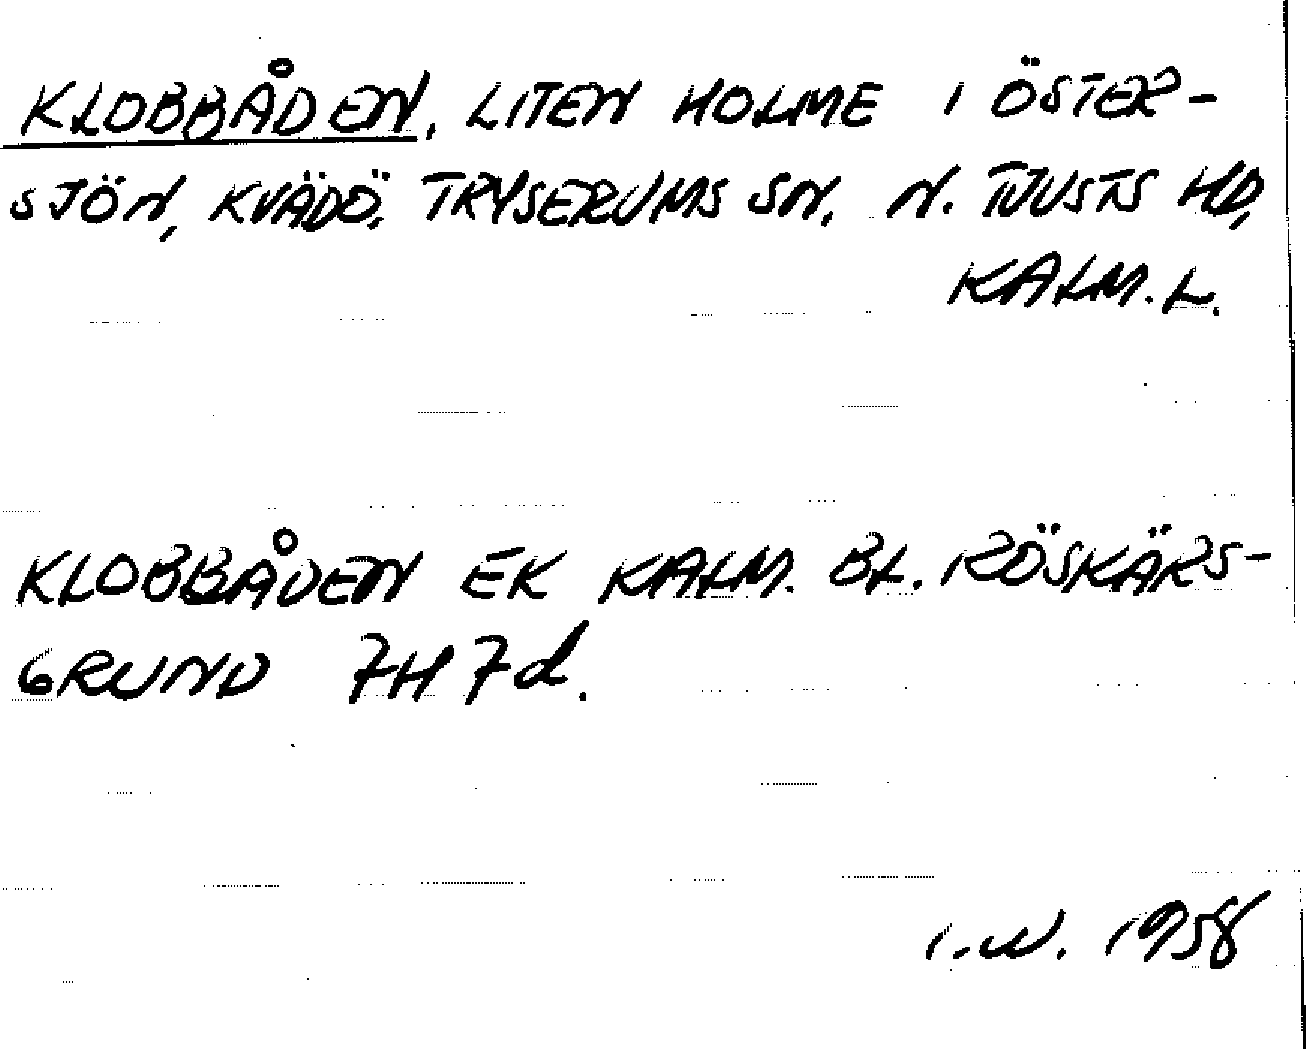 KLOBBÅDEN, LITEN HOLME I ÖSTER-
SJÖN, KVÄDÖ, TRYSERUMS SN, N. TJUSTS HD,
KALM. L.
KLOBBÅDEN EK KALM. BL. RÖSKÄRS-
GRUND 7H 7d.
I.W. 1958